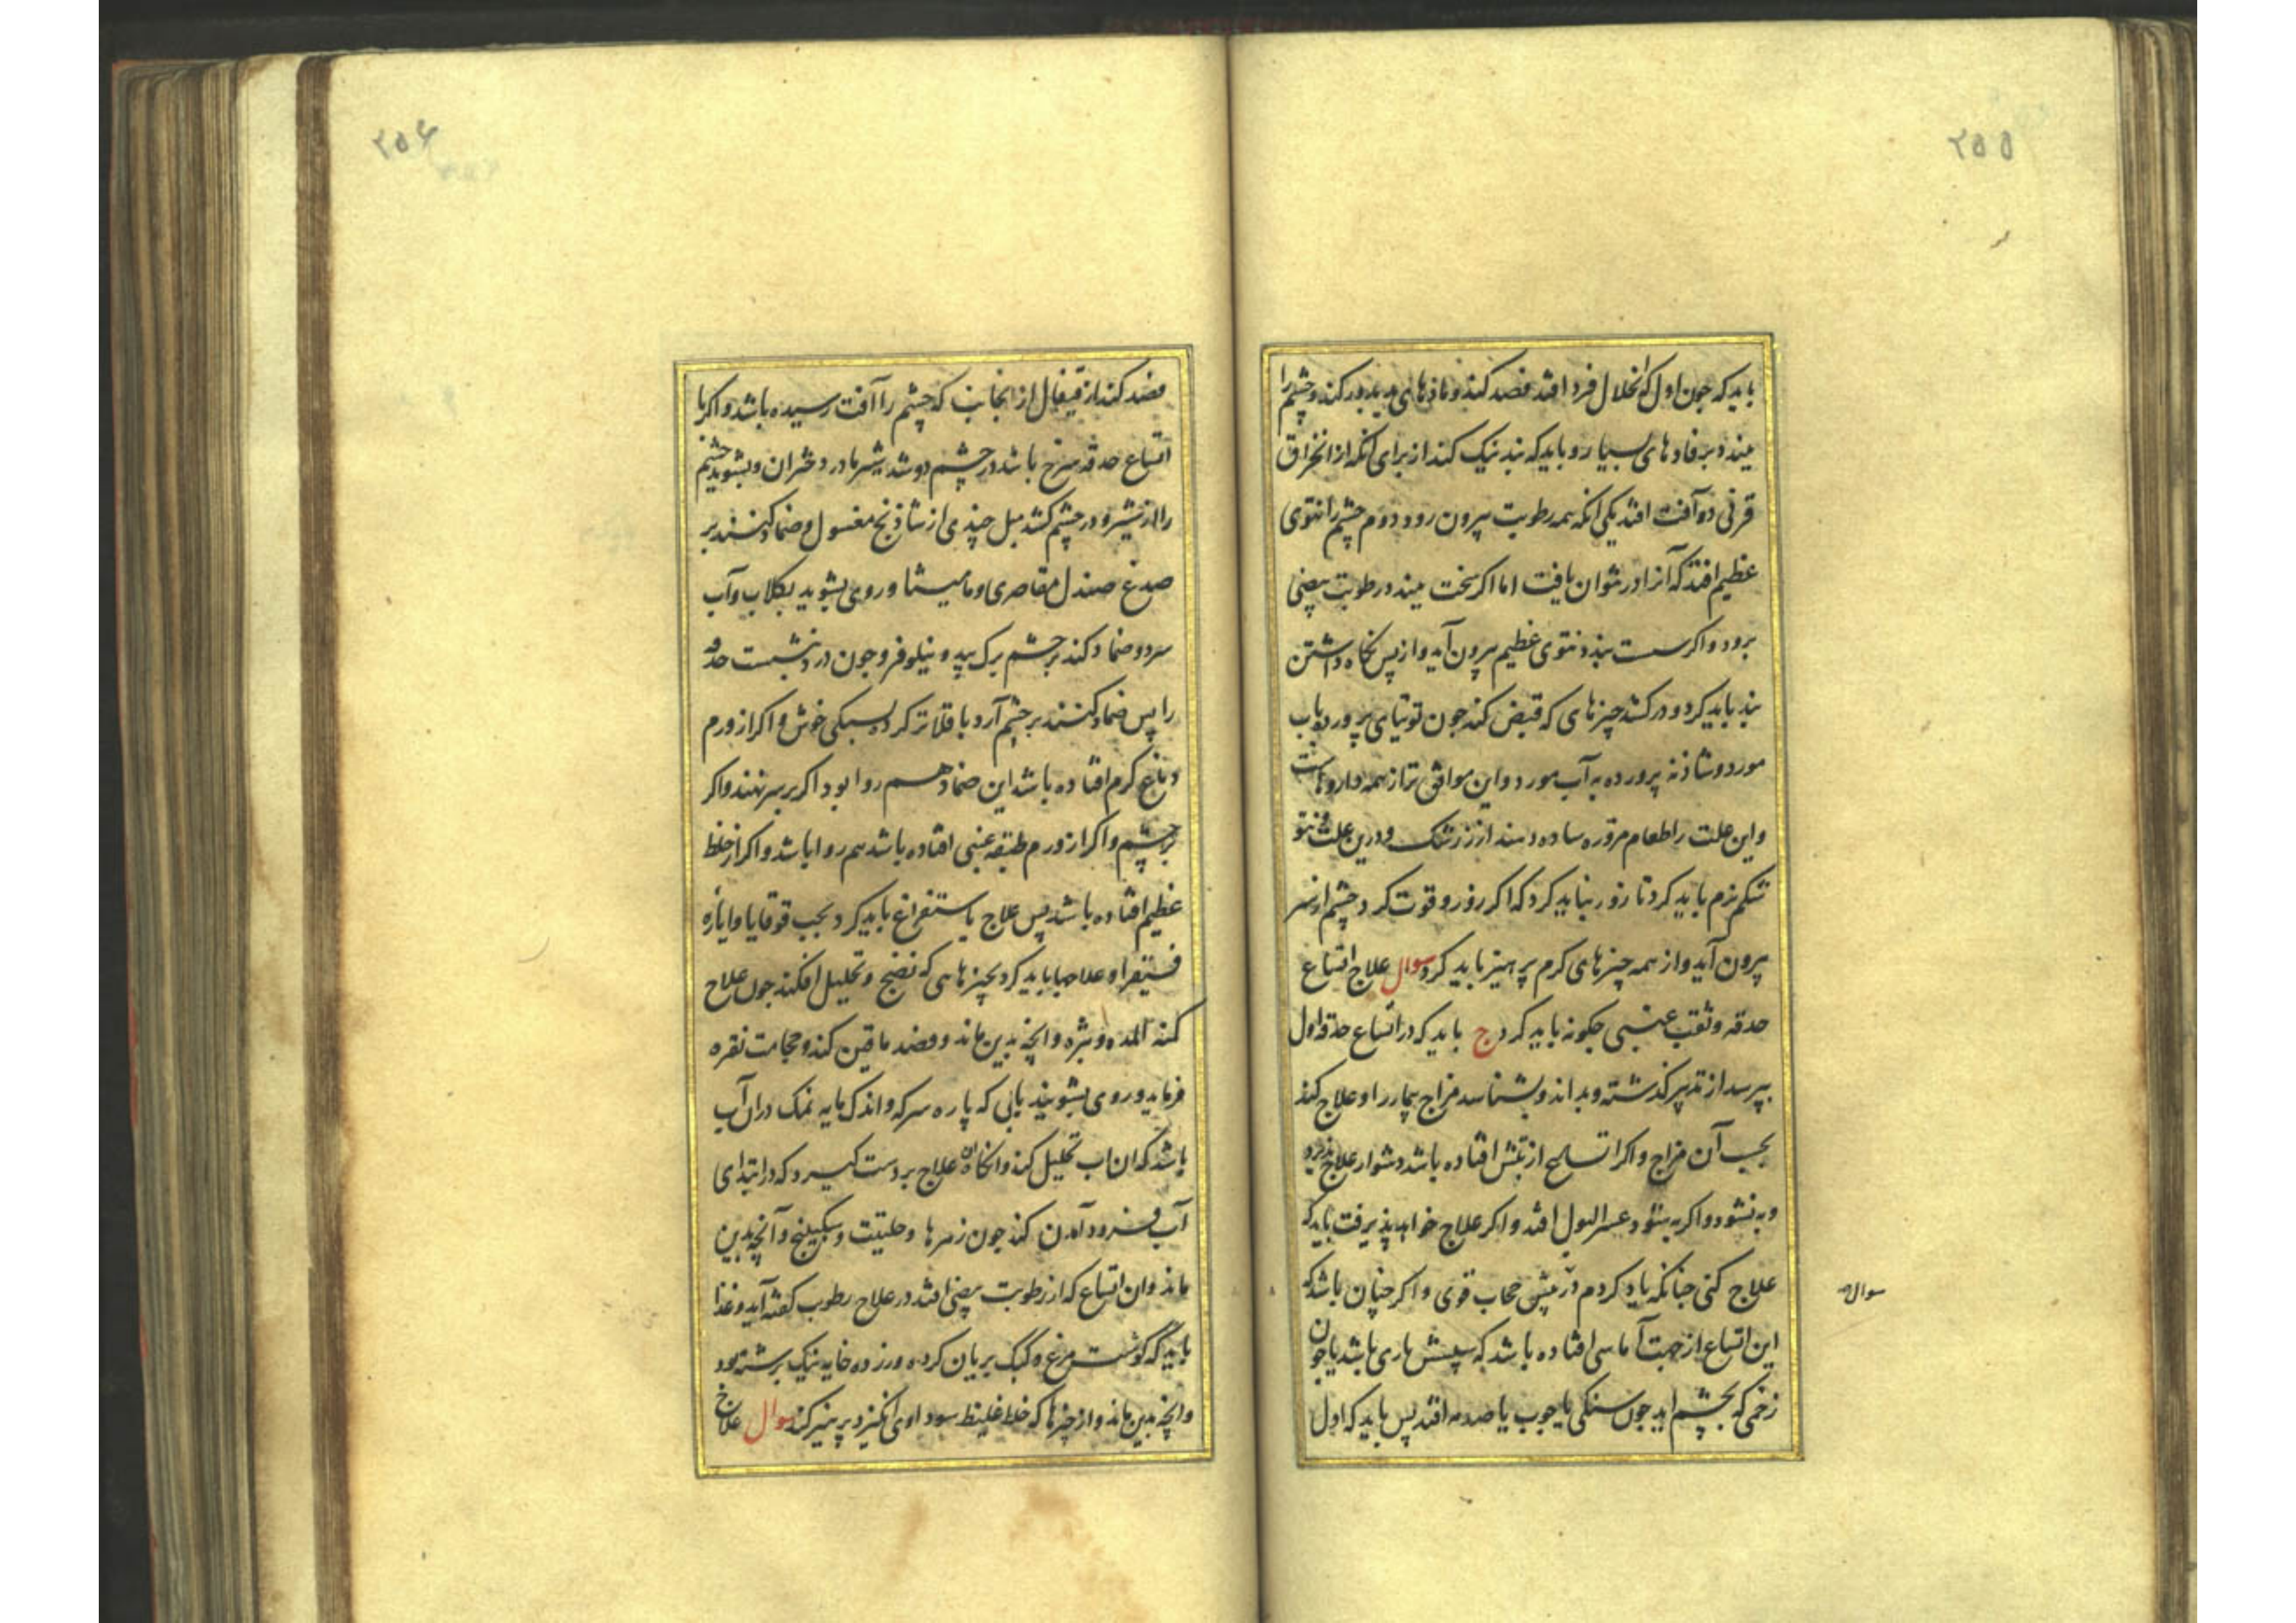 ۲۵۵
باید که جون اول که انحلال فرد افتد فصد کند و ماذهای بد بدور کند و چشم را
ببندد برفادهای بسیار و باید که بند نیک کند از برای آنکه از انخراق
قرنی دو آفت افتد یکی آنکه همه رطوبت بیرون رود و دوم چشم را نتوی
عظیم افتد که آنرا در نتوان یافت اما اکر سخت ببندد رطوبت بیضی
برود و اکر سست بندد نتوی عظیم بیرون آید و از پس نکاه داشتن
بند باید کرد و در کشد چیزهای که قبض کند جون توتیای پرورده باب
مورد و شاذنه پرورده به آب مورد و این موافق تر از همه داروهاست
و این علت را طعام مزوره ساده دهند از زرشک و درین علت و نتو
شکم نرم باید کرد تا زور نباید کرد که اکر زور و قوت کرد چشم از سر
بیرون آید و از همه چیزهای کرم پرهیز باید کرد سوال علاج اتساع
حدقه و ثقب عنبی جکونه باید کرد ج باید که در اتساع حدقه اول
بپرسد از تدبیر کذشته و بداند و بشناسد مزاج بیمار را و علاج کند
بحسب آن مزاج و اکر اتساع از تشنج افتاده باشد دشوار علاج پذیرد
و به نشود و اکر به شود عسر البول افتد و اکر علاج خواهد پذیرفت باید که
علاج کنی جنانکه یاد کردم در پیش حجاب قوی و اکر جنان باشد که
این اتساع از جهت آماسی افتاده باشد که سپسش باری باشد یا جون
زخمی که بجشم اید جون سنکی یا جوب یا صدمه افتد پس باید که اول
سوال
۲۵۶
فصد کند از قیفال از انجانب که چشم را آفت رسیده باشد و اکر با
اتساع حدقه سرخ باشد در چشم دوشد شیر مادر دختران و بشوید چشم
را از شیر و در چشم کشد میل چندی از شاذنج مغسول و ضماد کنند بر
صدغ صندل مقاصری و مامیشا و روی بشوید بکلاب و آب
سرد و ضماد کند بر جشم برک بید و نیلوفر و جون درد بنشست حدقه
را پس ضماد کنند بر چشم آرد باقلا تر کرده بسیکی خوش و اکر از ورم
دماغ کرم افتاده باشد این ضماد هم روا بود اکر بر سر نهند و اکر
بر چشم و اکر از ورم طبقه عنبی افتاده باشد هم روا باشد و اکر از خلط
عظیم افتاده باشد پس علاج باستفراغ باید کرد بحب قوقایا و ایاره
فیقرا و علاجها باید کرد بچیزهایی که نضج و تحلیل افکند جون علاج
کند المده و بثره و انچه بدین ماند و فصد ماقین کند و حجامت نقره
فرماید و روی بشویند بابی که پاره سرکه و اندک مایه نمک دران آب
باشد که ان اب تحلیل کند و انکاه ان علاج بر دست کیرد که در ابتدای
آب فرود آمدن کند جون زهرها و حلتیت و سکبینج و آنچه بدین
ماند و ان اتساع که از رطوبت بیضی افتد در علاج رطوب کفته آید و غذا
باید که کوشت مرغ و کبک بریان کرده و زرده خایه نیک برشته بود
و انچه بدین ماند و از چیزها که خلط غلیظ سوداوی انکیزد پرهیز کند سوال علاج